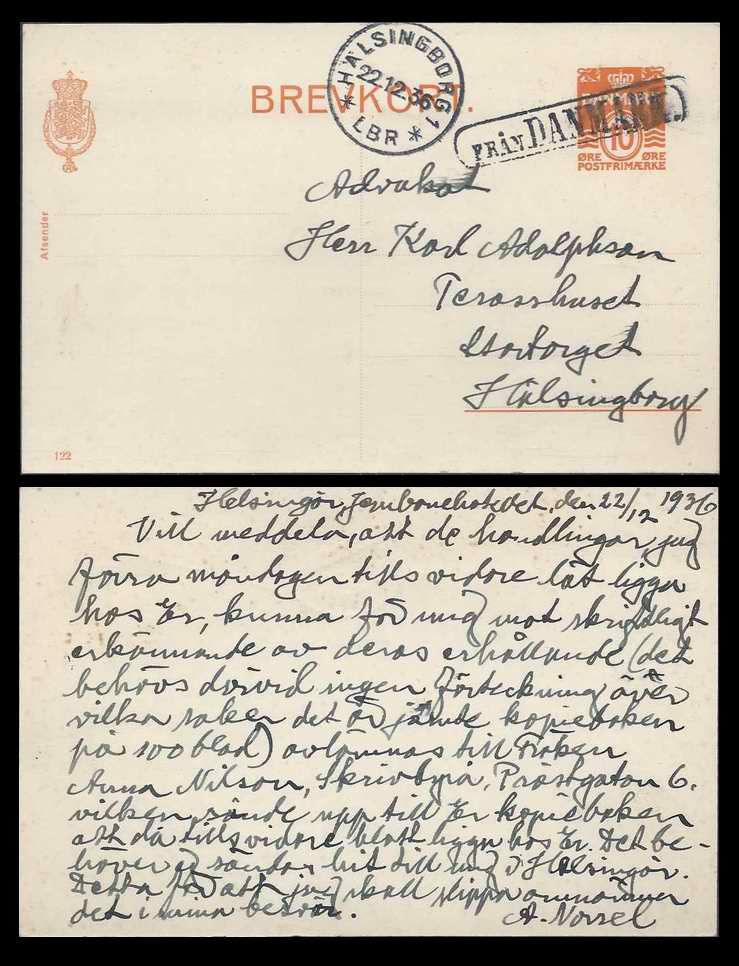 HÄLSINGBORG 1
22.12.36
* LBR *
BREVKORT.
FRÅN DANMARK.
DANMARK
10
ØRE ØRE
POSTFRIMÆRKE
Afsender
Advokat
Herr Karl Adolphson
Terasshuset
Stortorget
Hälsingborg
122
Helsingör, Jernbanehotellet, den 22/12 1936
Vill meddela, att de handlingar, jag
förra måndagen tills vidare lät ligga
hos Er, kunna för mig mot skriftligt
erkännande av deras erhållande (det
behövs därvid ingen förteckning över
vilka saker det är jämte kopieboken
på 100 blad) avlämnas till Fröken
Anna Nilson, Skrivbyrå, Prästgatan 6.
vilken sände upp till Er kopieboken
att då tills vidare blott ligga hos Er. Det be-
höver ej sändas hit till mig i Helsingör.
Detta för att jag skall slippa
det i mina besvär.
A. Norrel